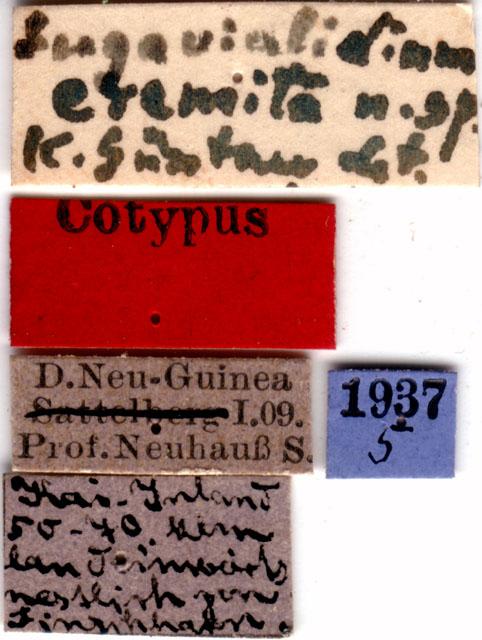 eremita n. sp.
K. Günther det.
Cotypus
D. Neu-Guinea
Sattelberg I.09.
Prof. Neuhauß S.
1937
5
Kai-Inland
50-70 klm
landeinwärts
westlich von
Finschhafen.